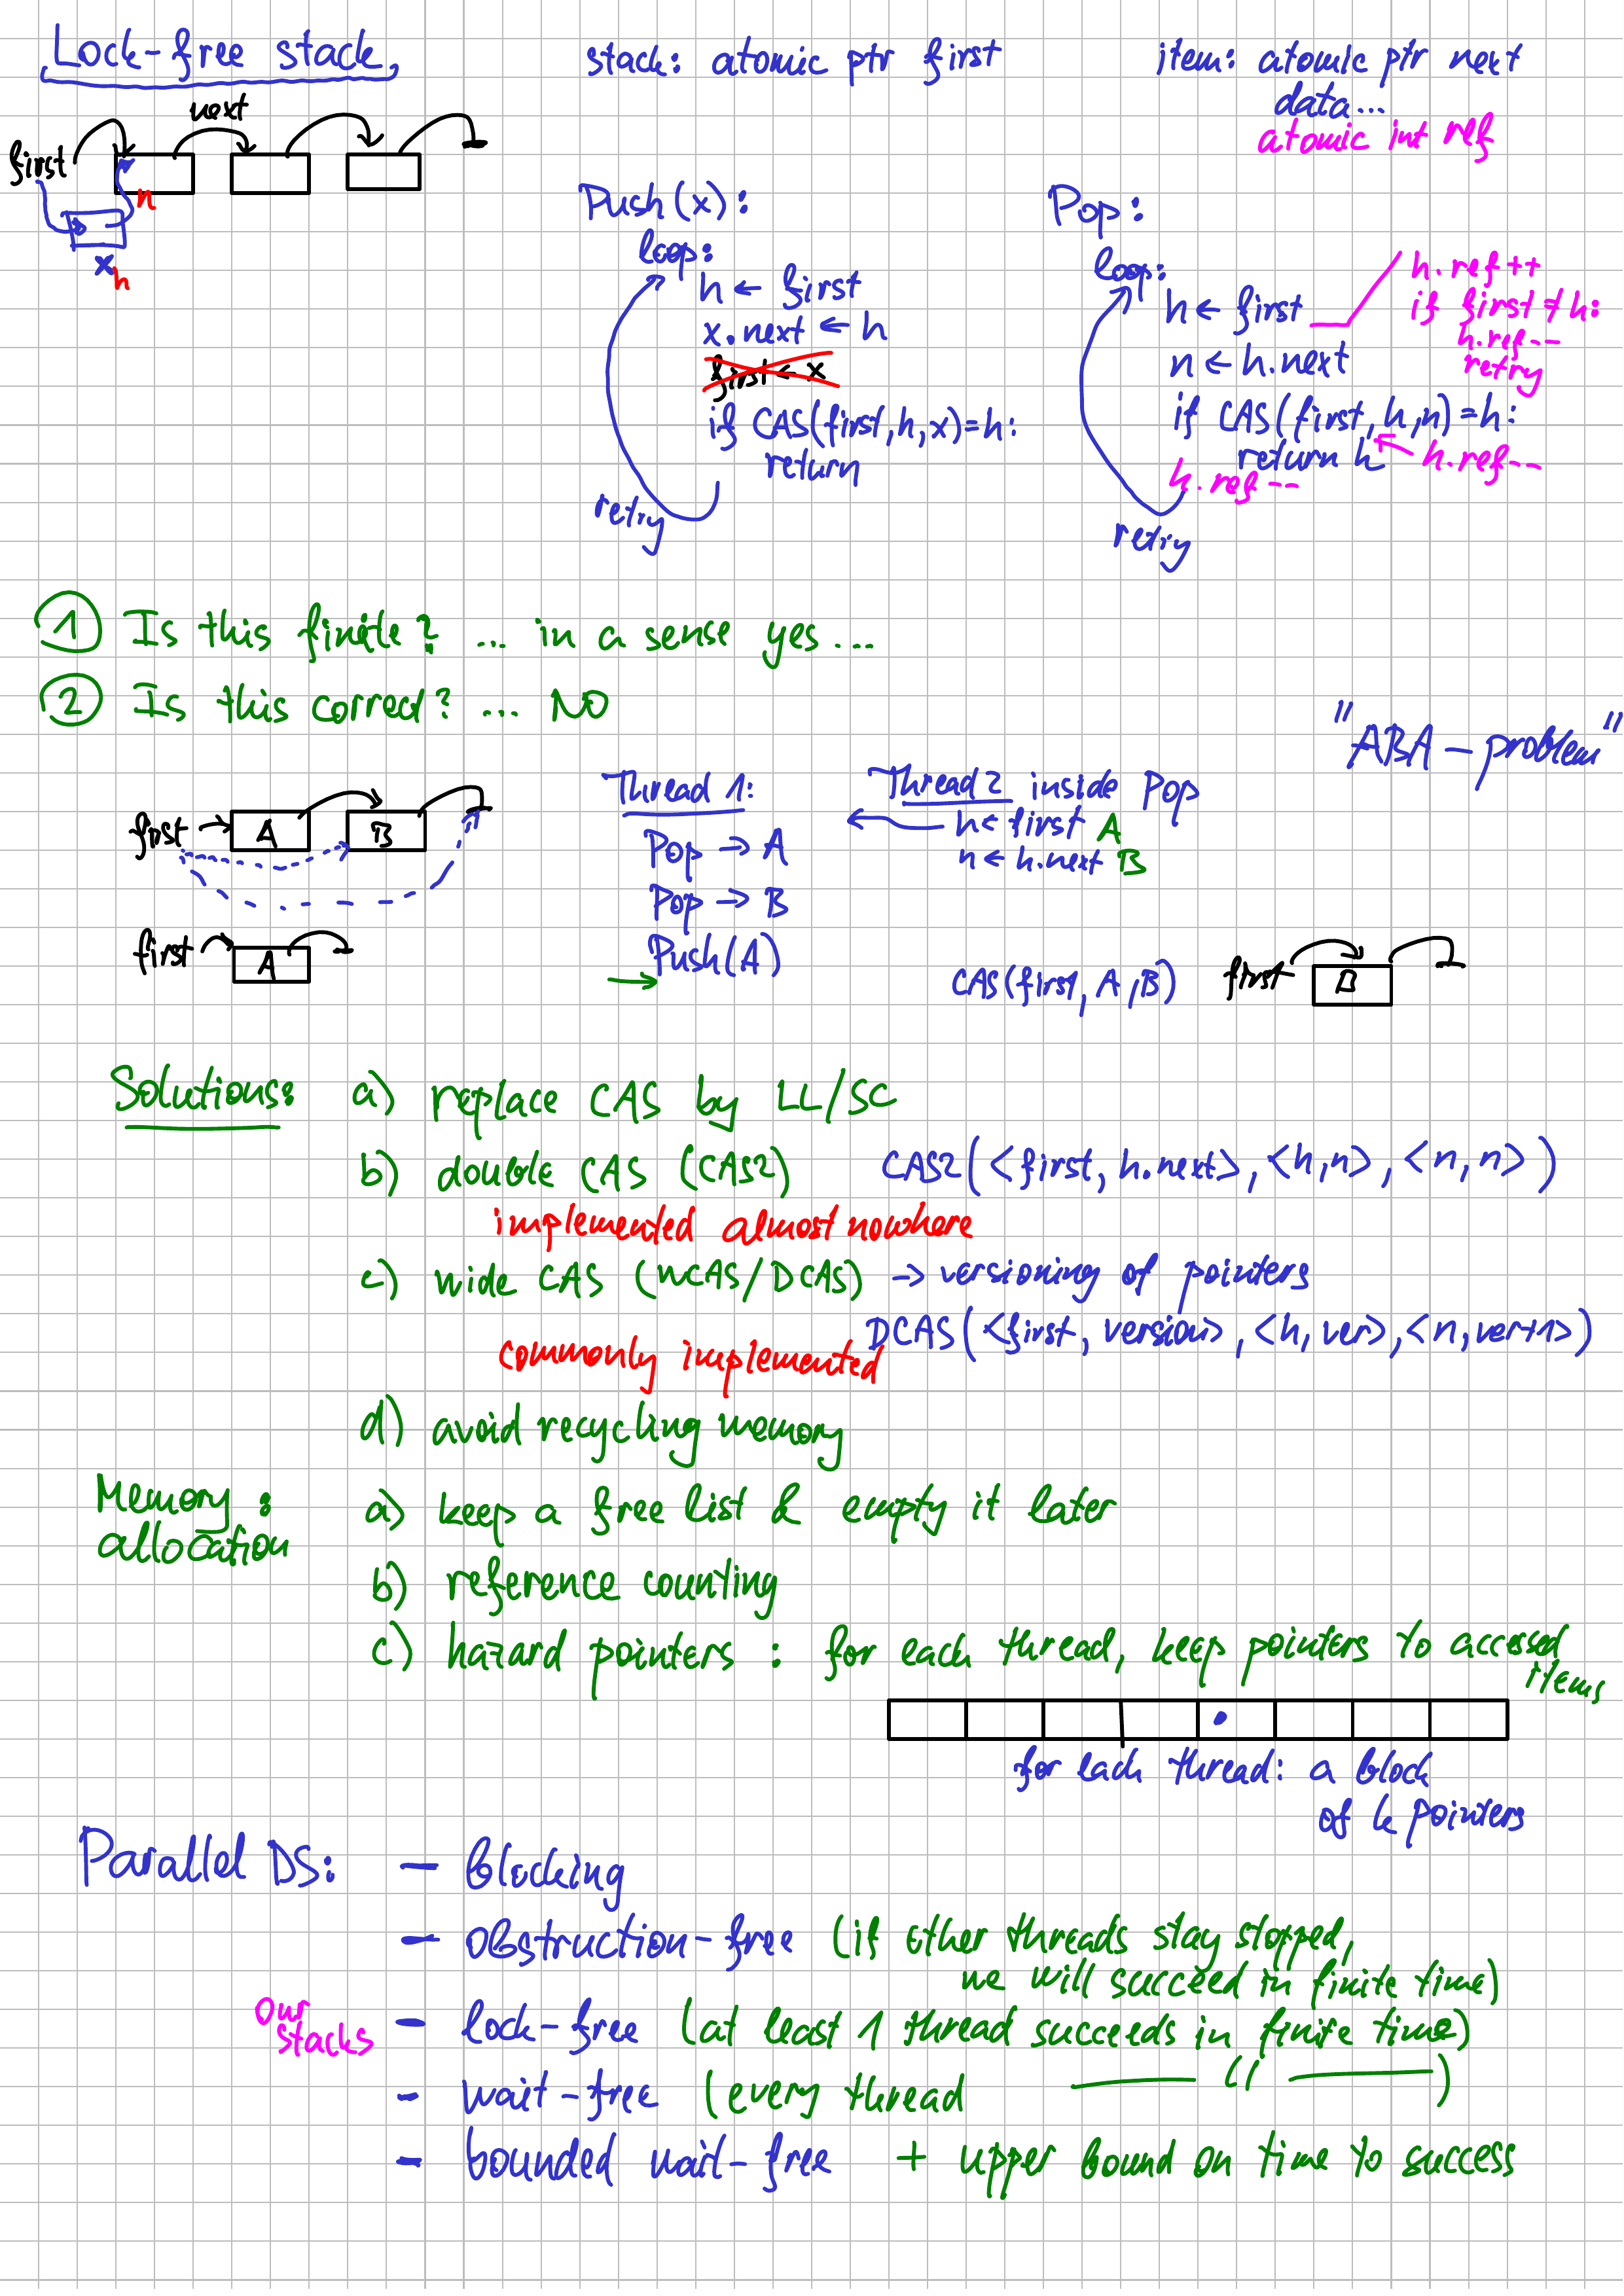 Lock-free stack
stack: atomic ptr first
item: atomic ptr next
data...
atomic int ref
next
first
n
x
h
Push(x):
loop:
h ← first
x.next ← h
first ← x
if CAS(first, h, x) = h:
return
retry
Pop:
loop:
h ← first
n ← h.next
if CAS(first, h, n) = h:
return h
h.ref --
retry
h.ref ++
if first ≠ h:
h.ref --
retry
h.ref --
① Is this finite? ... in a sense yes ...
② Is this correct? ... NO
"ABA - problem"
first → A B
Thread 1:
Pop → A
Pop → B
Push(A)
Thread 2 inside Pop
h ← first A
n ← h.next B
first A
CAS(first, A, B)
first B
Solutions: a) replace CAS by LL/SC
b) double CAS (CAS2) CAS2(<first, h.next>, <h, n>, <n, n>)
implemented almost nowhere
c) wide CAS (WCAS/DCAS) → versioning of pointers
DCAS(<first, version>, <h, ver>, <n, ver+1>)
commonly implemented
d) avoid recycling memory
Memory allocation:
a) keep a free list & empty it later
b) reference counting
c) hazard pointers : for each thread, keep pointers to accessed items
for each thread: a block
of k pointers
Parallel DS: - blocking
- obstruction-free (if other threads stay stopped,
we will succeed in finite time)
our stacks - lock-free (at least 1 thread succeeds in finite time)
- wait-free (every thread —— " ——)
- bounded wait-free + upper bound on time to success